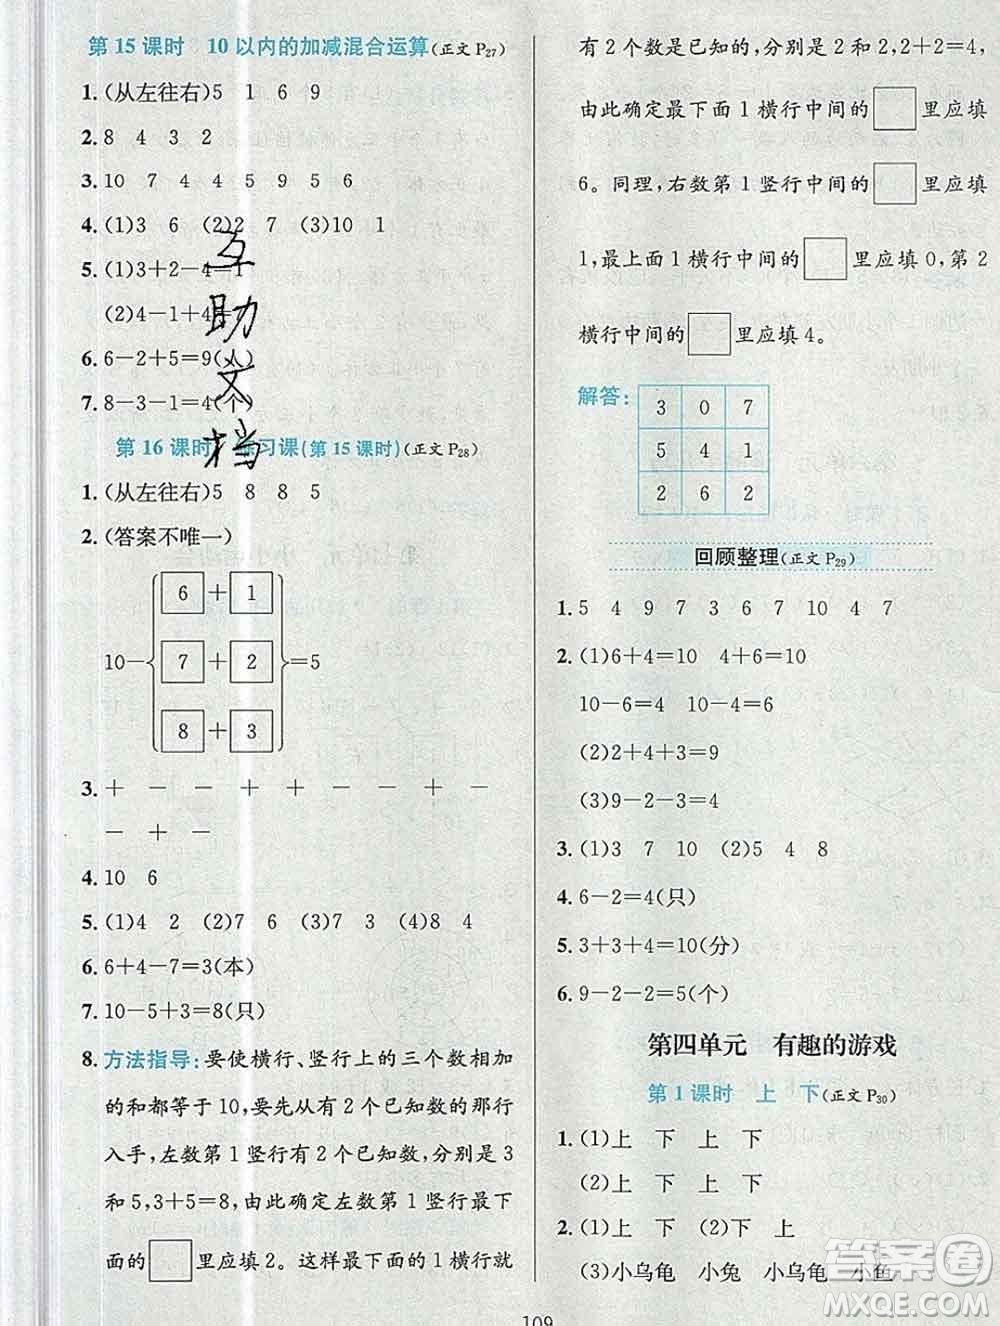 第15课时 10以内的加减混合运算(正文P27)
1.(从左往右)5 1 6 9
2. 8 4 3 2
3. 10 7 4 4 5 9 5 6
4.(1)3 6 (2)2 7 (3)10 1
5.(1)3+2-4=1
(2)4-1+4=
6. 6-2+5=9(人)
7. 8-3-1=4(个)
互
助
文
档
第16课时 练习课(第15课时)(正文P28)
1.(从左往右)5 8 8 5
2.(答案不唯一)
6+1
10- 7+2 =5
8+3
3. + - + - + - + - -
- + - -
4. 10 6
5.(1)4 2 (2)7 6 (3)7 3 (4)8 4
6. 6+4-7=3(本)
7. 10-5+3=8(只)
8.方法指导:要使横行、竖行上的三个数相加
的和都等于10,要先从有2个已知数的那行
入手,左数第1竖行有2个已知数,分别是3
和5,3+5=8,由此确定左数第1竖行最下
面的□里应填2。这样最下面的1横行就
有2个数是已知的,分别是2和2,2+2=4,
由此确定最下面1横行中间的□里应填
6。同理,右数第1竖行中间的□里应填
1,最上面1横行中间的□里应填0,第2
横行中间的□里应填4。
解答:
3 0 7
5 4 1
2 6 2
回顾整理(正文P29)
1. 5 4 9 7 3 6 7 10 4 7
2.(1)6+4=10 4+6=10
10-6=4 10-4=6
(2)2+4+3=9
(3)9-2-3=4
3.(1)3 7 10 (2)5 4 8
4. 6-2=4(只)
5. 3+3+4=10(分)
6. 9-2-2=5(个)
第四单元 有趣的游戏
第1课时 上 下(正文P30)
1.(1)上 下 上 下
(2)上 下 上 下
2.(1)上 下 (2)下 上
(3)小乌龟 小兔 小乌龟 小鱼
答案圈
MXQE.COM
109